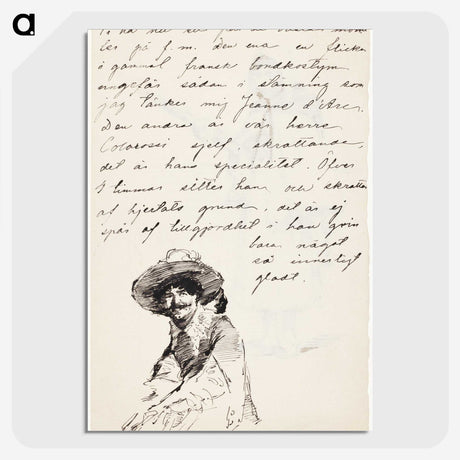 a.
på f.m. Den ena en flicka
i gammal fransk bondkostym
ungefär sådan i stämning som
jag tänker mig Jeanne d'Arc.
Den andra är vår herre
Colarossi sjelf, skrattande,
det är hans specialitet. Öfver
7 timmar sitter han och skrattar
af hjertats grund, det är ej
spår af tillgjordhet i han grin
bara något
så innerligt
gladt.